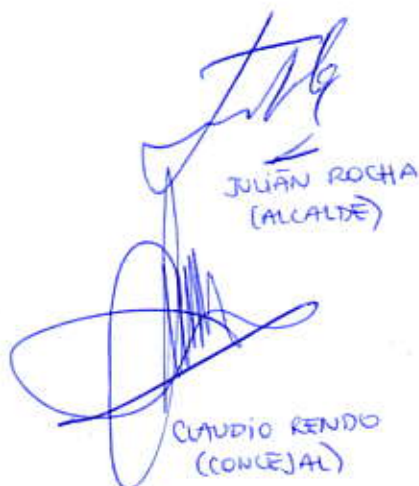 JULIÁN ROCHA
(ALCALDE)
CLAUDIO RENDO
(CONCEJAL)